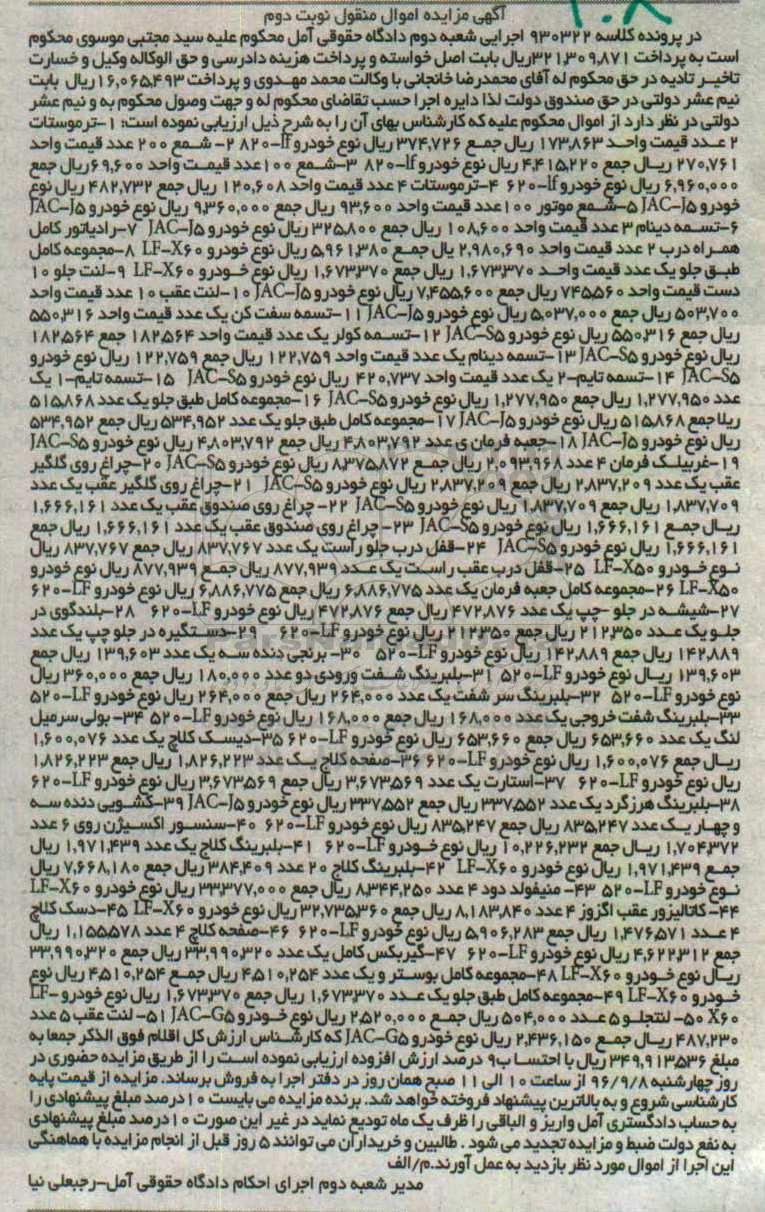 ۱۰۸
آگهی مزایده اموال منقول نوبت دوم
در پرونده کلاسه ۹۳۰۳۲۲ اجرایی شعبه دوم دادگاه حقوقی آمل محکوم علیه سید مجتبی موسوی محکوم
است به پرداخت ۳۲۱,۳۰۹,۸۷۱ریال بابت اصل خواسته و پرداخت هزینه دادرسی و حق الوکاله وکیل و خسارت
تاخیر تادیه در حق محکوم له آقای محمدرضا خانجانی با وکالت محمد مهدوی و پرداخت ۱۶,۰۶۵,۴۹۳ریال بابت
نیم عشر دولتی در حق صندوق دولت لذا دایره اجرا حسب تقاضای محکوم له و جهت وصول محکوم به و نیم عشر
دولتی در نظر دارد از اموال محکوم علیه که کارشناس بهای آن را به شرح ذیل ارزیابی نموده است: ۱-ترموستات
۲ عدد قیمت واحد ۱۷۳,۸۶۳ ریال جمع ۳۷۴,۷۲۶ ریال نوع خودرو lf-۸۲۰ ۲- شمع ۲۰۰ عدد قیمت واحد
۲۷۰,۷۶۱ ریال جمع ۴,۴۱۵,۲۲۰ ریال نوع خودرو lf-۸۲۰ ۳-شمع ۱۰۰عدد قیمت واحد ۶۹,۶۰۰ریال جمع
۶,۹۶۰,۰۰۰ ریال نوع خودرو lf-۶۲۰ ۴-ترموستات ۴ عدد قیمت واحد ۱۲۰,۶۰۸ ریال جمع ۴۸۲,۷۳۲ ریال نوع
خودرو JAC-J۵ ۵-شمع موتور ۱۰۰عدد قیمت واحد ۹۳,۶۰۰ ریال جمع ۹,۳۶۰,۰۰۰ ریال نوع خودرو JAC-J۵
۶-تسمه دینام ۳ عدد قیمت واحد ۱۰۸,۶۰۰ ریال جمع ۳۲۵,۸۰۰ ریال نوع خودرو JAC-J۵ ۷-رادیاتور کامل
همراه درب ۲ عدد قیمت واحد ۲,۹۸۰,۶۹۰ یال جمع ۵,۹۶۱,۳۸۰ ریال نوع خودرو LF-X۶۰ ۸-مجموعه کامل
طبق جلو یک عدد قیمت واحد ۱,۶۷۳,۳۷۰ ریال جمع ۱,۶۷۳,۳۷۰ ریال نوع خودرو LF-X۶۰ ۹-لنت جلو ۱۰
دست قیمت واحد ۷۴۵,۵۶۰ ریال جمع ۷,۴۵۵,۶۰۰ ریال نوع خودرو JAC-J۵ ۱۰-لنت عقب ۱۰ عدد قیمت واحد
۵۰۳,۷۰۰ ریال جمع ۵,۰۳۷,۰۰۰ ریال نوع خودرو JAC-J۵ ۱۱-تسمه سفت کن یک عدد قیمت واحد ۵۵۰,۳۱۶
ریال جمع ۵۵۰,۳۱۶ ریال نوع خودرو JAC-S۵ ۱۲-تسمه کولر یک عدد قیمت واحد ۱۸۲,۵۶۴ جمع ۱۸۲,۵۶۴
ریال نوع خودرو JAC-S۵ ۱۳-تسمه دینام یک عدد قیمت واحد ۱۲۲,۷۵۹ ریال جمع ۱۲۲,۷۵۹ ریال نوع خودرو
JAC-S۵ ۱۴-تسمه تایم-۲ یک عدد قیمت واحد ۴۲۰,۷۳۷ ریال نوع خودرو JAC-S۵ ۱۵-تسمه تایم-۱ یک
عدد ۱,۲۷۷,۹۵۰ ریال جمع ۱,۲۷۷,۹۵۰ ریال نوع خودرو JAC-S۵ ۱۶-مجموعه کامل طبق جلو یک عدد ۵۱۵,۸۶۸
ریلا جمع ۵۱۵,۸۶۸ ریال نوع خودرو JAC-J۵ ۱۷-مجموعه کامل طبق جلو یک عدد ۵۳۴,۹۵۲ ریال جمع ۵۳۴,۹۵۲
ریال نوع خودرو JAC-J۵ ۱۸-جعبه فرمان ی عدد ۴,۸۰۳,۷۹۲ ریال جمع ۴,۸۰۳,۷۹۲ ریال نوع خودرو JAC-S۵
۱۹-غربیلک فرمان ۴ عدد ۲,۰۹۳,۹۶۸ ریال جمع ۸,۳۷۵,۸۷۲ ریال نوع خودرو JAC-S۵ ۲۰-چراغ روی گلگیر
عقب یک عدد ۲,۸۳۷,۲۰۹ ریال جمع ۲,۸۳۷,۲۰۹ ریال نوع خودرو JAC-S۵ ۲۱-چراغ روی گلگیر عقب یک عدد
۱,۸۳۷,۷۰۹ ریال جمع ۱,۸۳۷,۷۰۹ ریال نوع خودرو JAC-S۵ ۲۲- چراغ روی صندوق عقب یک عدد ۱,۶۶۶,۱۶۱
ریال جمع ۱,۶۶۶,۱۶۱ ریال نوع خودرو JAC-S۵ ۲۳- چراغ روی صندوق عقب یک عدد ۱,۶۶۶,۱۶۱ ریال جمع
۱,۶۶۶,۱۶۱ ریال نوع خودرو JAC-S۵ ۲۴-قفل درب جلو راست یک عدد ۸۳۷,۷۶۷ ریال جمع ۸۳۷,۷۶۷ ریال
نوع خودرو LF-X۵۰ ۲۵-قفل درب عقب راست یک عدد ۸۷۷,۹۳۹ ریال جمع ۸۷۷,۹۳۹ ریال نوع خودرو
LF-X۵۰ ۲۶-مجموعه کامل جعبه فرمان یک عدد ۶,۸۸۶,۷۷۵ ریال جمع ۶,۸۸۶,۷۷۵ ریال نوع خودرو LF-۶۲۰
۲۷-شیشه در جلو -چپ یک عدد ۴۷۲,۸۷۶ ریال جمع ۴۷۲,۸۷۶ ریال نوع خودرو LF-۶۲۰ ۲۸-بلندگوی در
جلو یک عدد ۲۱۲,۳۵۰ ریال جمع ۲۱۲,۳۵۰ ریال نوع خودرو LF-۶۲۰ ۲۹-دستگیره در جلو چپ یک عدد
۱۴۲,۸۸۹ ریال جمع ۱۴۲,۸۸۹ ریال نوع خودرو LF-۵۲۰ ۳۰- برنجی دنده سه یک عدد ۱۳۹,۶۰۳ ریال جمع
۱۳۹,۶۰۳ ریال نوع خودرو LF-۵۲۰ ۳۱-بلبرینگ شفت ورودی دو عدد ۱۸۰,۰۰۰ ریال جمع ۳۶۰,۰۰۰ ریال
نوع خودرو LF-۵۲۰ ۳۲-بلبرینگ سر شفت یک عدد ۲۶۴,۰۰۰ ریال جمع ۲۶۴,۰۰۰ ریال نوع خودرو LF-۵۲۰
۳۳-بلبرینگ شفت خروجی یک عدد ۱۶۸,۰۰۰ ریال جمع ۱۶۸,۰۰۰ ریال نوع خودرو LF-۵۲۰ ۳۴- بولی سرمیل
لنگ یک عدد ۶۵۳,۶۶۰ ریال جمع ۶۵۳,۶۶۰ ریال نوع خودرو LF-۶۲۰ ۳۵-دیسک کلاچ یک عدد ۱,۶۰۰,۰۷۶
ریال جمع ۱,۶۰۰,۰۷۶ ریال نوع خودرو LF-۶۲۰ ۳۶-صفحه کلاج یک عدد ۱,۸۲۶,۲۲۳ ریال جمع ۱,۸۲۶,۲۲۳
ریال نوع خودرو LF-۶۲۰ ۳۷-استارت یک عدد ۳,۶۷۳,۵۶۹ ریال جمع ۳,۶۷۳,۵۶۹ ریال نوع خودرو LF-۶۲۰
۳۸-بلبرینگ هرزگرد یک عدد ۳۳۷,۵۵۲ ریال جمع ۳۳۷,۵۵۲ ریال نوع خودرو JAC-J۵ ۳۹-کشویی دنده سه
و چهار یک عدد ۸۳۵,۲۴۷ ریال جمع ۸۳۵,۲۴۷ ریال نوع خودرو LF-۶۲۰ ۴۰-سنسور اکسیژن روی ۶ عدد
۱,۷۰۴,۳۷۲ ریال جمع ۱۰,۲۲۶,۲۳۲ ریال نوع خودرو LF-۶۲۰ ۴۱-بلبرینگ کلاج یک عدد ۱,۹۷۱,۴۳۹ ریال
جمع ۱,۹۷۱,۴۳۹ ریال نوع خودرو LF-X۶۰ ۴۲-بلبرینگ کلاج ۲۰ عدد ۳۸۴,۴۰۹ ریال جمع ۷,۶۶۸,۱۸۰ ریال
نوع خودرو LF-۵۲۰ ۴۳- منیفولد دود ۴ عدد ۸,۳۴۴,۲۵۰ ریال جمع ۳۳,۳۷۷,۰۰۰ ریال نوع خودرو LF-X۶۰
۴۴-کاتالیزور عقب اگزوز ۴ عدد ۸,۱۸۳,۸۴۰ ریال جمع ۳۲,۷۳۵,۳۶۰ ریال نوع خودرو LF-X۶۰ ۴۵-دسک کلاچ
۴ عدد ۱,۴۷۶,۵۷۱ ریال جمع ۵,۹۰۶,۲۸۳ ریال نوع خودرو LF-۶۲۰ ۴۶-صفحه کلاچ ۴ عدد ۱,۱۵۵,۵۷۸ ریال
جمع ۴,۶۲۲,۳۱۲ ریال نوع خودرو LF-۶۲۰ ۴۷-گیربکس کامل یک عدد ۳۳,۹۹۰,۳۲۰ ریال جمع ۳۳,۹۹۰,۳۲۰
ریال نوع خودرو LF-X۶۰ ۴۸-مجموعه کامل بوستر و یک عدد ۴,۵۱۰,۲۵۴ ریال جمع ۴,۵۱۰,۲۵۴ ریال نوع
خودرو LF-X۶۰ ۴۹-مجموعه کامل طبق جلو یک عدد ۱,۶۷۳,۳۷۰ ریال جمع ۱,۶۷۳,۳۷۰ ریال نوع خودرو LF-
X۶۰ ۵۰- لنتجلو ۵ عدد ۵۰۴,۰۰۰ ریال جمع ۲,۵۲۰,۰۰۰ ریال نوع خودرو JAC-G۵ ۵۱- لنت عقب ۵ عدد
۴۸۷,۲۳۰ ریال جمع ۲,۴۳۶,۱۵۰ ریال نوع خودرو JAC-G۵ که کارشناس ارزش کل اقلام فوق الذکر جمعا به
مبلغ ۳۴۹,۹۱۳,۵۳۶ ریال با احتساب ۹ درصد ارزش افزوده ارزیابی نموده است را از طریق مزایده حضوری در
روز چهارشنبه ۹۶/۹/۸ از ساعت ۱۰ الی ۱۱ صبح همان روز در دفتر اجرا به فروش برساند. مزایده از قیمت پایه
کارشناسی شروع و به بالاترین پیشنهاد فروخته خواهد شد. برنده مزایده می بایست ۱۰ درصد مبلغ پیشنهادی را
به حساب دادگستری آمل واریز و الباقی را ظرف یک ماه تودیع نماید در غیر این صورت ۱۰ درصد مبلغ پیشنهادی
به نفع دولت ضبط و مزایده تجدید می شود . طالبین و خریداران می توانند ۵ روز قبل از انجام مزایده با هماهنگی
این اجرا از اموال مورد نظر بازدید به عمل آورند.م/الف
مدیر شعبه دوم اجرای احکام دادگاه حقوقی آمل-رجبعلی نیا